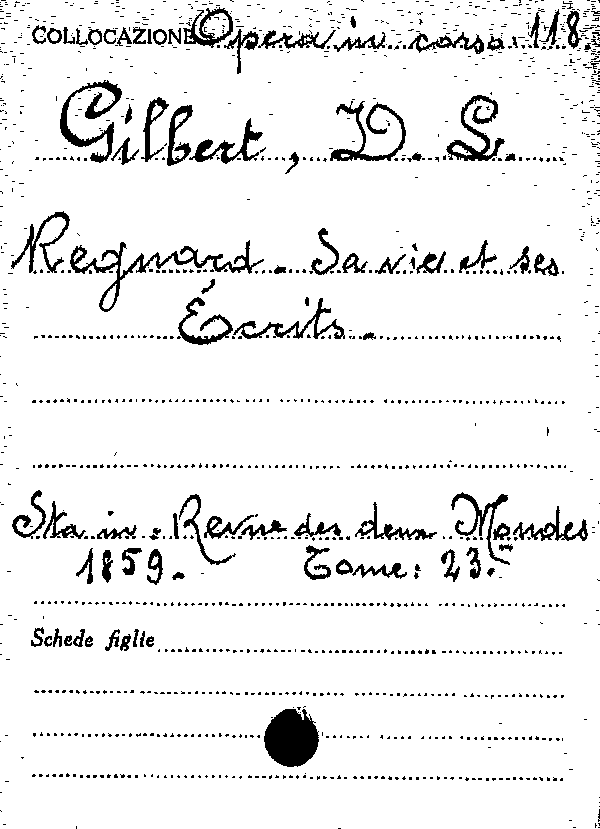 COLLOCAZIONE Opera in corso. 118.
Gilbert, D. L.
Regnard. Sa vie et ses
Écrits.
Sta in: Revue des deux Mondes
1859. Tome: 23.
Schede figlie